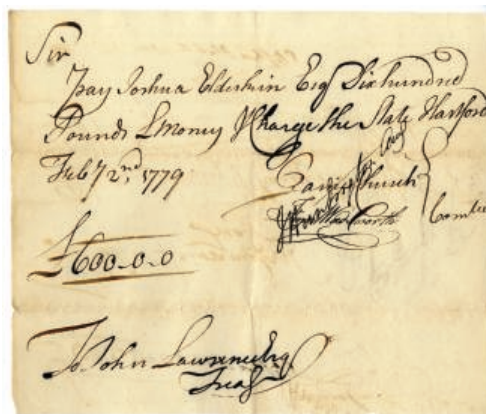 Sir
Pay Joshua Elderkin Esq Six hundred
Pounds L Money & Charge the State Hartford
Feby 2nd, 1779
Church
Wadsworth
Comtee
£600-0-0
To John Lawrence Esq
Treas